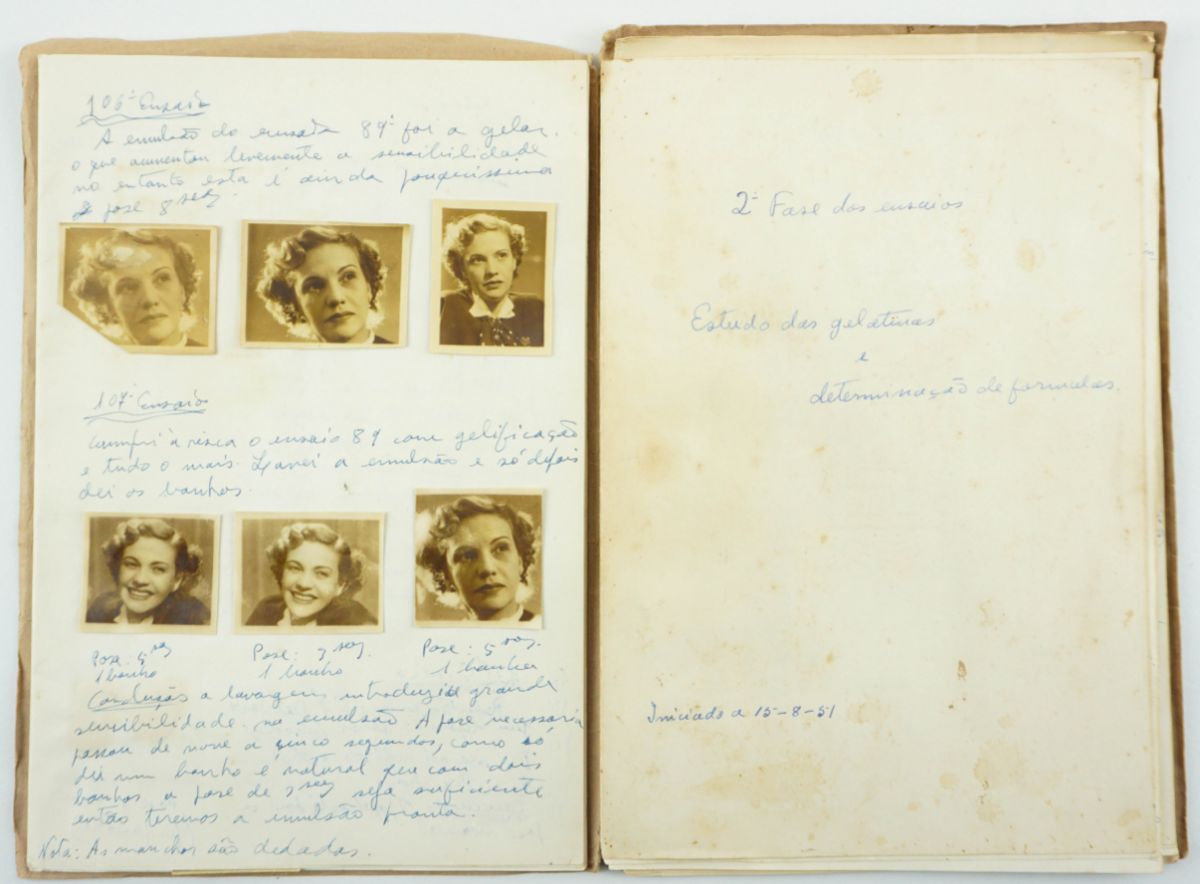 106º Ensaio
A emulsão do ensaio 89º foi a gelar.
o que aumentou levemente a sensibilidade
no entanto esta é ainda pouquissima
pose 8 seg.
107º Ensaio
Cumpri à risca o ensaio 89 com gelificação
e tudo o mais. Lavei a emulsão e só depois
dei os banhos.
Pose: 5 seg
1 banho
Pose: 7 seg.
1 banho
Pose: 5 seg.
1 banho
Conclusão a lavagem introduziu grande
sensibilidade na emulsão. A pose necessaria
passou de nove a cinco segundos, como só
dei um banho é natural que com dois
banhos a pose de 3 seg seja suficiente
então teremos a emulsão pronta.
Nota: As manchas são dedadas.
2ª Fase dos ensaios
Estudo das gelatinas
e
determinação de formulas.
Iniciado a 15-8-51